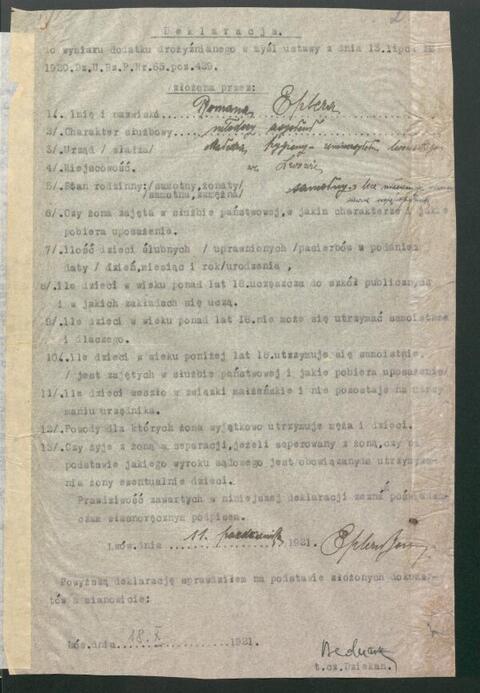 Deklaracja.
do wymiaru dodatku drożyźnianego w myśl ustawy z dnia 13.lipca
1920.Dz.U.Rz.P.Nr.65.poz.429.
złożona przez:
1/. Imię i nazwisko Romana Eplera
2/. Charakter służbowy młodszy asystent
3/. Urząd / służba/ Katedra hygieny uniwersytetu
4/. Miejscowość. we Lwowie
5/. Stan rodzinny:/samotny,żonaty/ samotny
/samotna,zamężna/
6/. Czy żona zajęta w służbie państwowej,w jakim charakterze i jakie
pobiera uposażenie.
7/. Ilość dzieci ślubnych / uprawnionych /pasierbów z podaniem
daty / dzień,miesiąc i rok/urodzenia ,
8/. Ile dzieci w wieku ponad lat 18.uczęszcza do szkół publicznych
i w jakich zakładach się uczą.
9/. Ile dzieci w wieku ponad lat 18.nie może się utrzymać samoistnie
i dlaczego.
10/. Ile dzieci w wieku poniżej lat 18.utrzymuje się samoistnie,
/ jest zajętych w służbie państwowej i jakie pobiera uposażenie/
11/. Ile dzieci weszło w związki małżeńskie i nie pozostaje na utrzy
maniu urzędnika.
12/. Powody dla których żona wyjętkowo utrzymuje męża i dzieci.
13/. Czy żyje z żoną w separacji,jeżeli seperowany z żoną,czy na
podstawie jakiego wyroku sądowego jest obowiązanym utrzymywa-
nia żony ewentualnie dzieci.
Prawdziwość zawartych w niniejszej deklaracji zeznń poświad
czam własnoręcznym podpisem.
Lwów,dnia 11. października 1921.
Powyższą deklarację sprawdziłem na podstawie złożonych dokumen-
tów a mianowicie:
Lwów,dnia 18.X 1921.
t.cz.Dziekan.